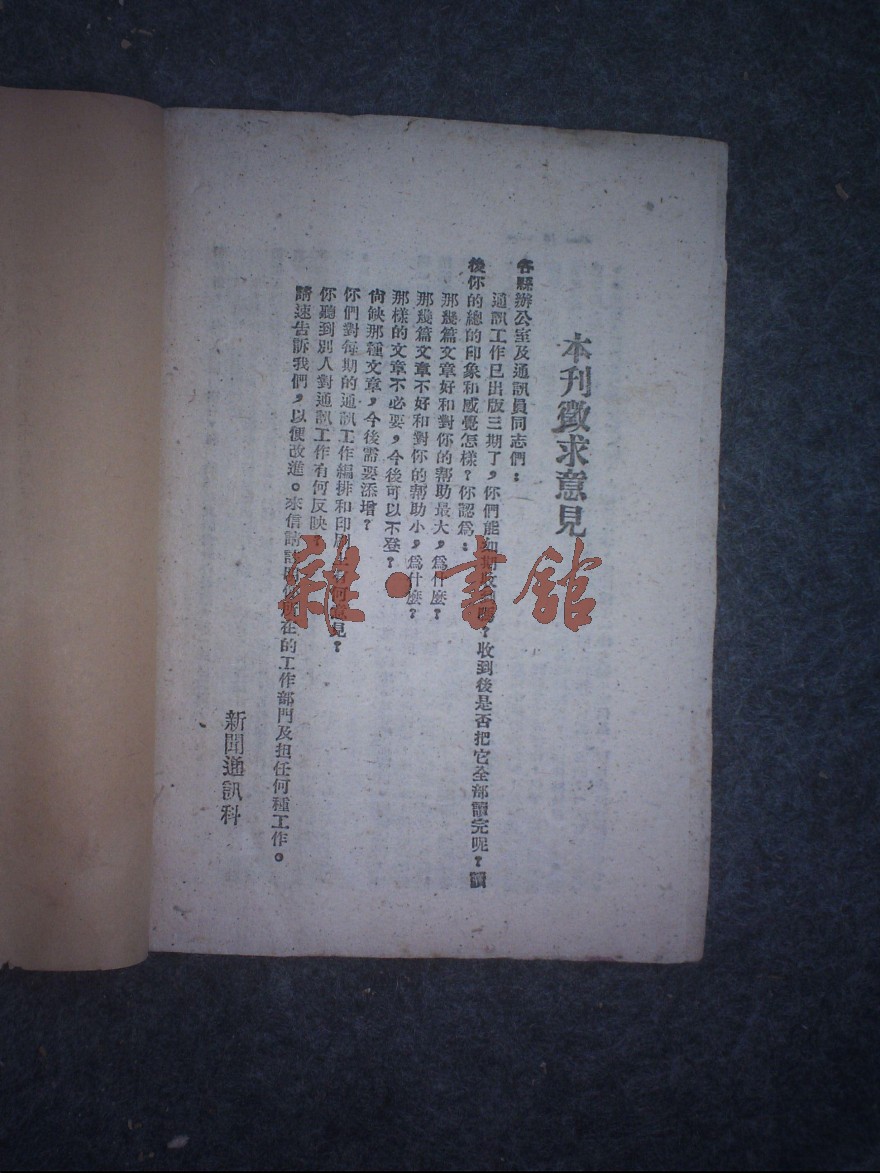 本刊徵求意見
各縣辦公室及通訊員同志們：
通訊工作已出版三期了，你們能如期收到嗎？收到後是否把它全部讀完呢？讀
後你的總的印象和感覺怎樣？你認爲：
那幾篇文章好和對你的幫助最大，爲什麼？
那幾篇文章不好和對你的幫助小，爲什麼？
那樣的文章不必要，今後可以不登？
尚缺那種文章，今後需要添增？
你們對每期的通訊工作編排和印刷有何意見？
你聽到別人對通訊工作有何反映？
請速告訴我們，以便改進。來信請註明你所在的工作部門及担任何種工作。
新聞通訊科
雜·書館